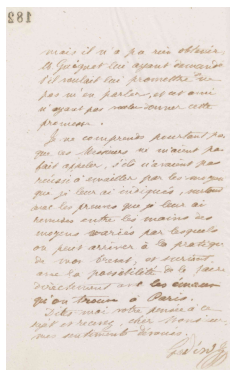 182
mais il n'a pa rien obtenir
M. Guignet lui ayant demandé
s'il voulait lui promettre de
pas n'en parler, et cet ami
n'ayant pas voulu donner cette
promesse.
Je ne comprends pourtant pas
que ces Messieurs ne m'aient pas
fait appeler, s'ils n'avaient pas
réussi à émailler par les moyens
que je leur ai indiqués, surtout
par les preuves que je leur ai
remises entre les mains des
moyens variés par lesquels
on peut arriver à la pratique
de mon brevet, et surtout,
que la possibilité de le faire
directement avec les émaux
qu'on trouve à Paris.
Dites moi votre pensée à ce
sujet et recevez, cher Monsieur,
mes sentiments dévoués.